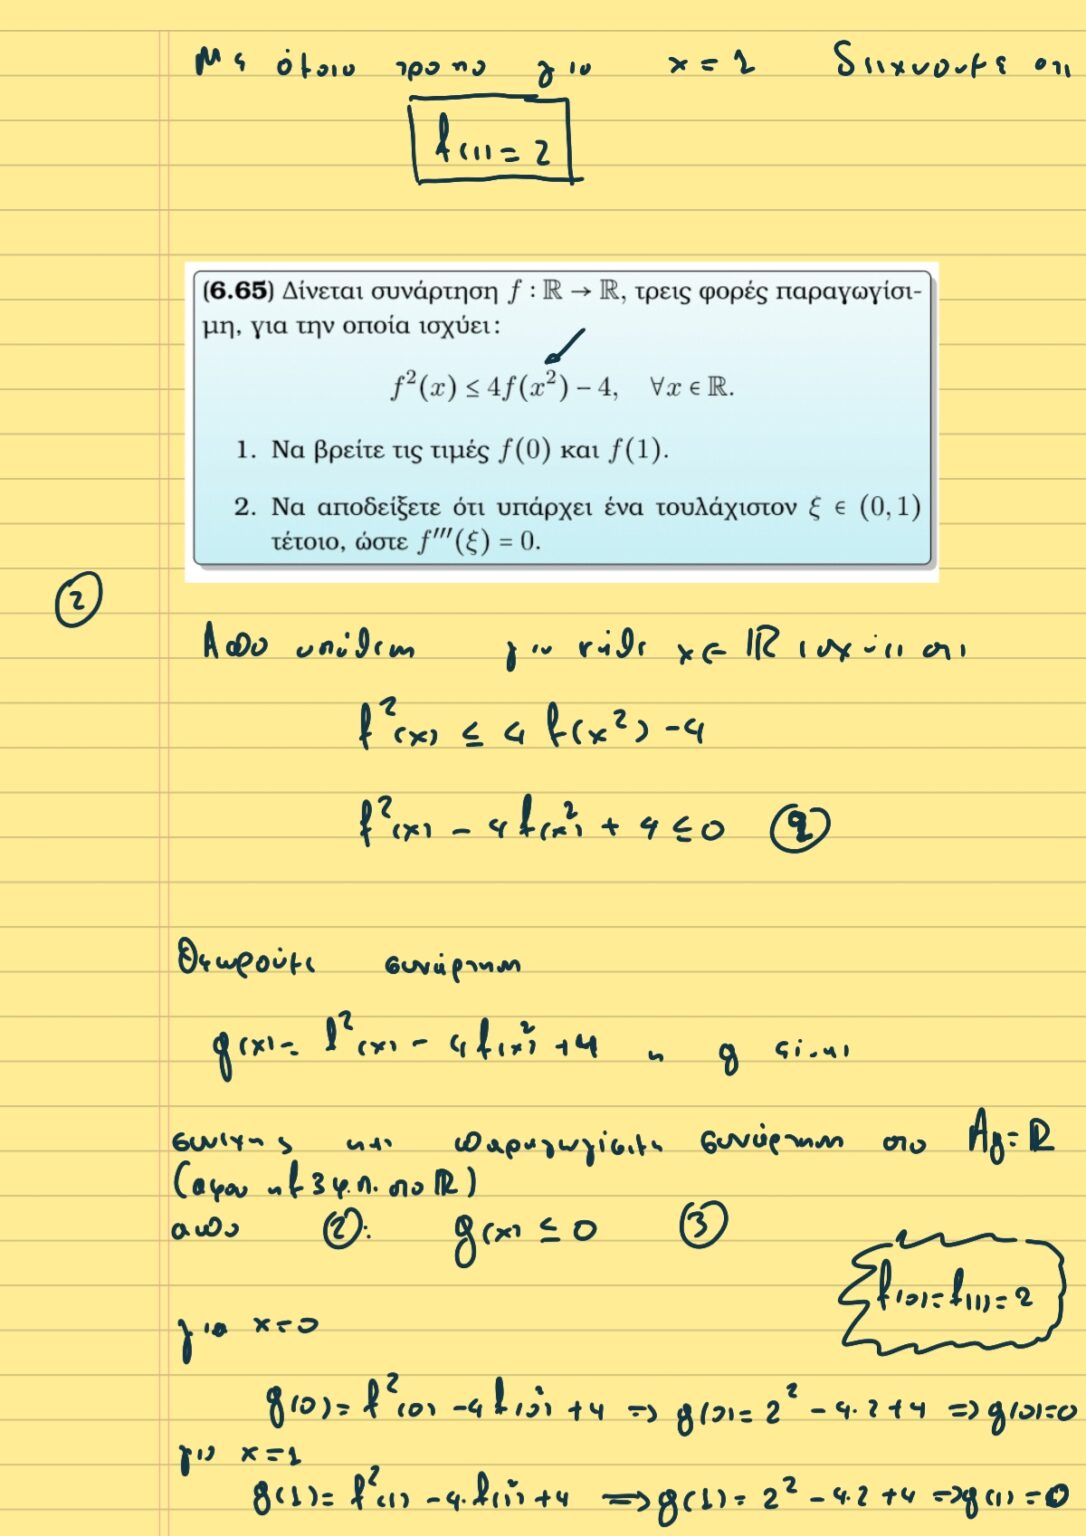 Με όποιο τροπο για x = 1 δειχνουμε οτι
f(1) = 2
(6.65) Δίνεται συνάρτηση f : ℝ → ℝ, τρεις φορές παραγωγίσι-
μη, για την οποία ισχύει:
f²(x) ≤ 4f(x²) − 4, ∀x ∈ ℝ.
1. Να βρείτε τις τιμές f(0) και f(1).
2. Να αποδείξετε ότι υπάρχει ένα τουλάχιστον ξ ∈ (0,1)
τέτοιο, ώστε f′′′(ξ) = 0.
②
Απο υπόθεση για κάθε x ∈ ℝ ισχύει οτι
f²(x) ≤ 4 f(x²) - 4
f²(x) - 4f(x²) + 4 ≤ 0 ②
Θεωρούμε συνάρτηση
g(x) = f²(x) - 4f(x²) + 4 η g είναι
συνεχης και παραγωγίσιμη συνάρτηση στο Ag = ℝ
(αφου η f 3 φ.π. στο ℝ)
απο ②: g(x) ≤ 0 ③
f(0) = f(1) = 2
για x = 0
g(0) = f²(0) - 4f(0²) + 4 ⇒ g(0) = 2² - 4·2 + 4 ⇒ g(0) = 0
για x = 1
g(1) = f²(1) - 4·f(1²) + 4 ⇒ g(1) = 2² - 4·2 + 4 ⇒ g(1) = 0